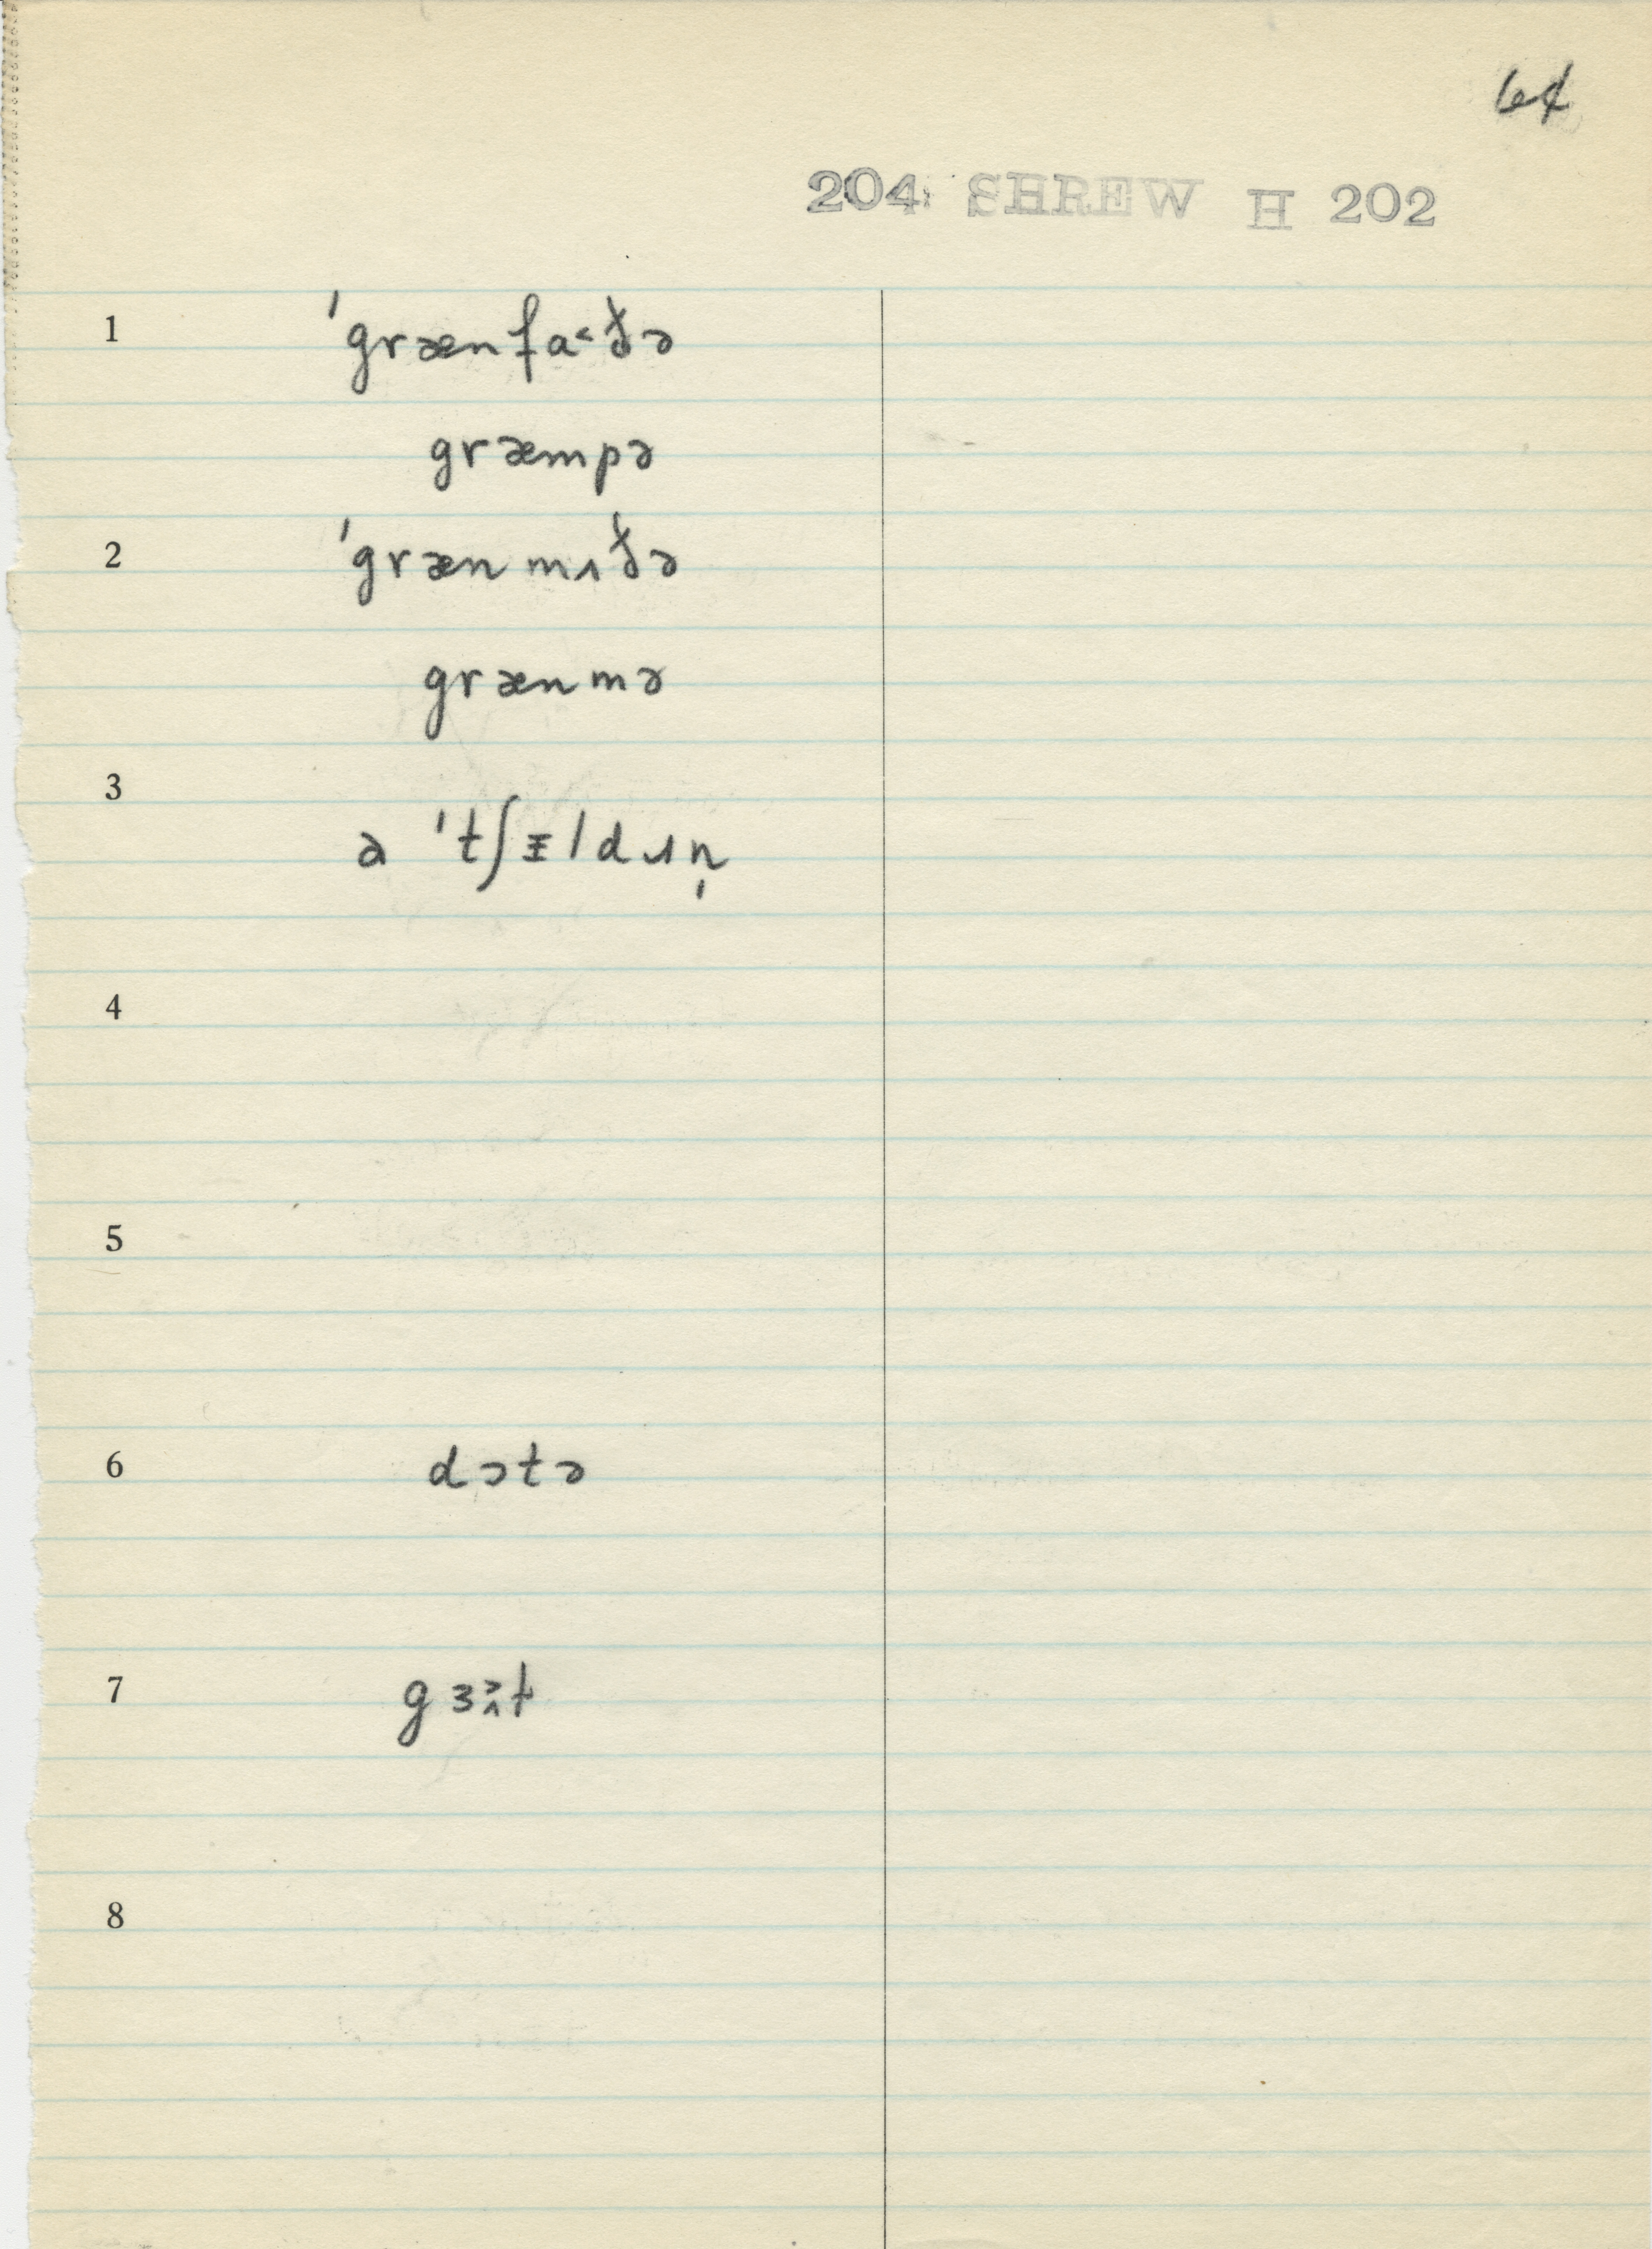 64
204 SHREW H 202
1 ˈgrænfa˂ðə
græmpə
2 ˈgrænmʌðə
grænmə
3
ə ˈtʃɪldɹn̩
4
5
6 dɔtə
7 gɜ˃˄ɫ
8